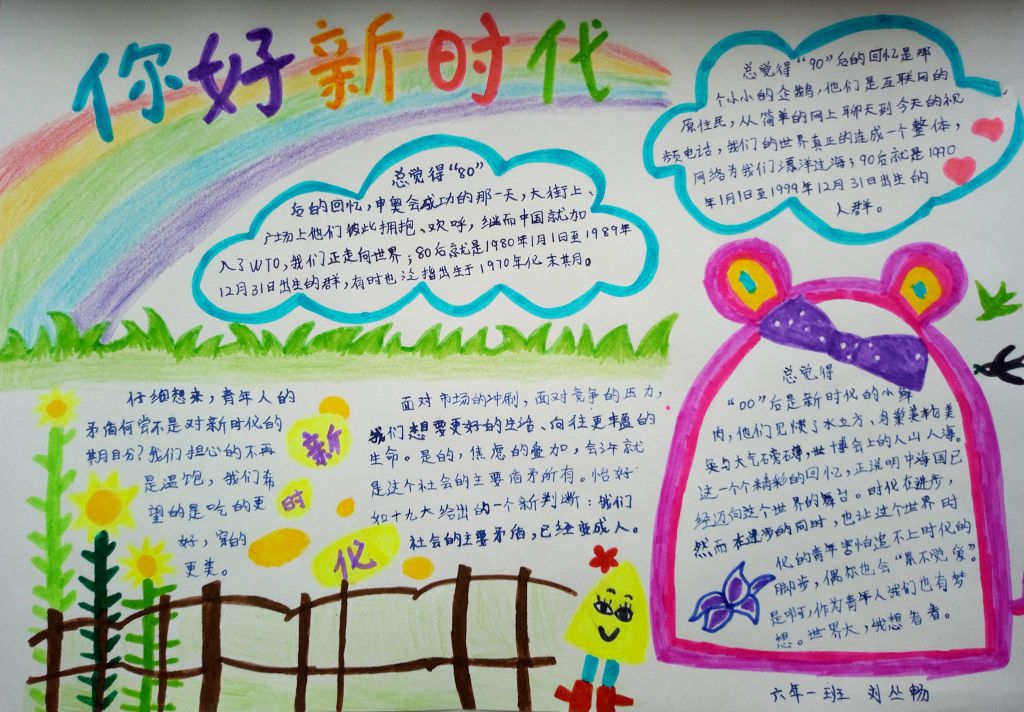 你好新时代
总觉得“80”
后的回忆,申奥会成功的那一天,大街上、
广场上他们彼此拥抱、欢呼,继而中国就加
入了WTO,我们正走向世界;80后就是1980年1月1日至1989年
12月31日出生的群,有时也泛指出生于1970年代末期。
总觉得“90”后的回忆是那
个小小的企鹅,他们是互联网的
原住民,从简单的网上聊天到今天的视
频电话,我们的世界真正的连成一个整体,
网络为我们漂洋过海;90后就是1990
年1月1日至1999年12月31日出生的
人群。
仔细想来,青年人的
矛盾何尝不是对新时代的
期自分?我们担心的不再
是温饱,我们希
望的是吃的更
好,穿的
更美。
新
时
代
面对市场的冲刷,面对竞争的压力,
我们想要更好的生活、向往更丰盈的
生命。是的,焦虑的叠加,会许就
是这个社会的主要矛盾所有。恰好
如十九大给出的一个新判断:我们
社会的主要矛盾,已经变成人。
总觉得
“00”后是新时代的小鲜
肉,他们见惯了水立方、鸟巢美栈美
奂与大气磅礴,世博会上的人山人海。
这一个个精彩的回忆,正说明中海国已
经迈向这个世界的舞台。时代在进步,
然而在进步的同时,也让这个世界时
代的青年害怕追不上时代的
脚步,偶尔也会“累不觉爱”。
是啊,作为青年人我们也有梦
想。世界大,我想看看。
六年一班 刘丛畅